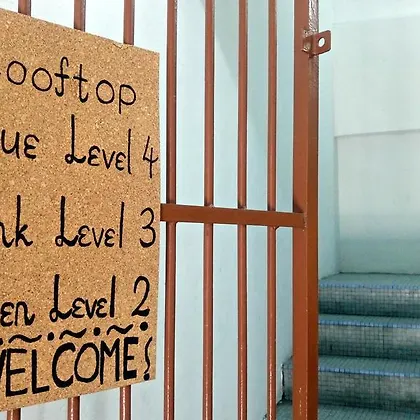 Rooftop
ue Level 4
nk Level 3
en Level 2
WELCOME!